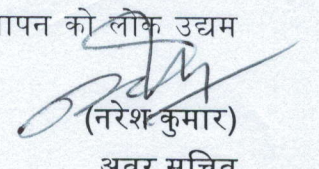 को लोक उद्यम
(नरेश कुमार)
अवर सचिव